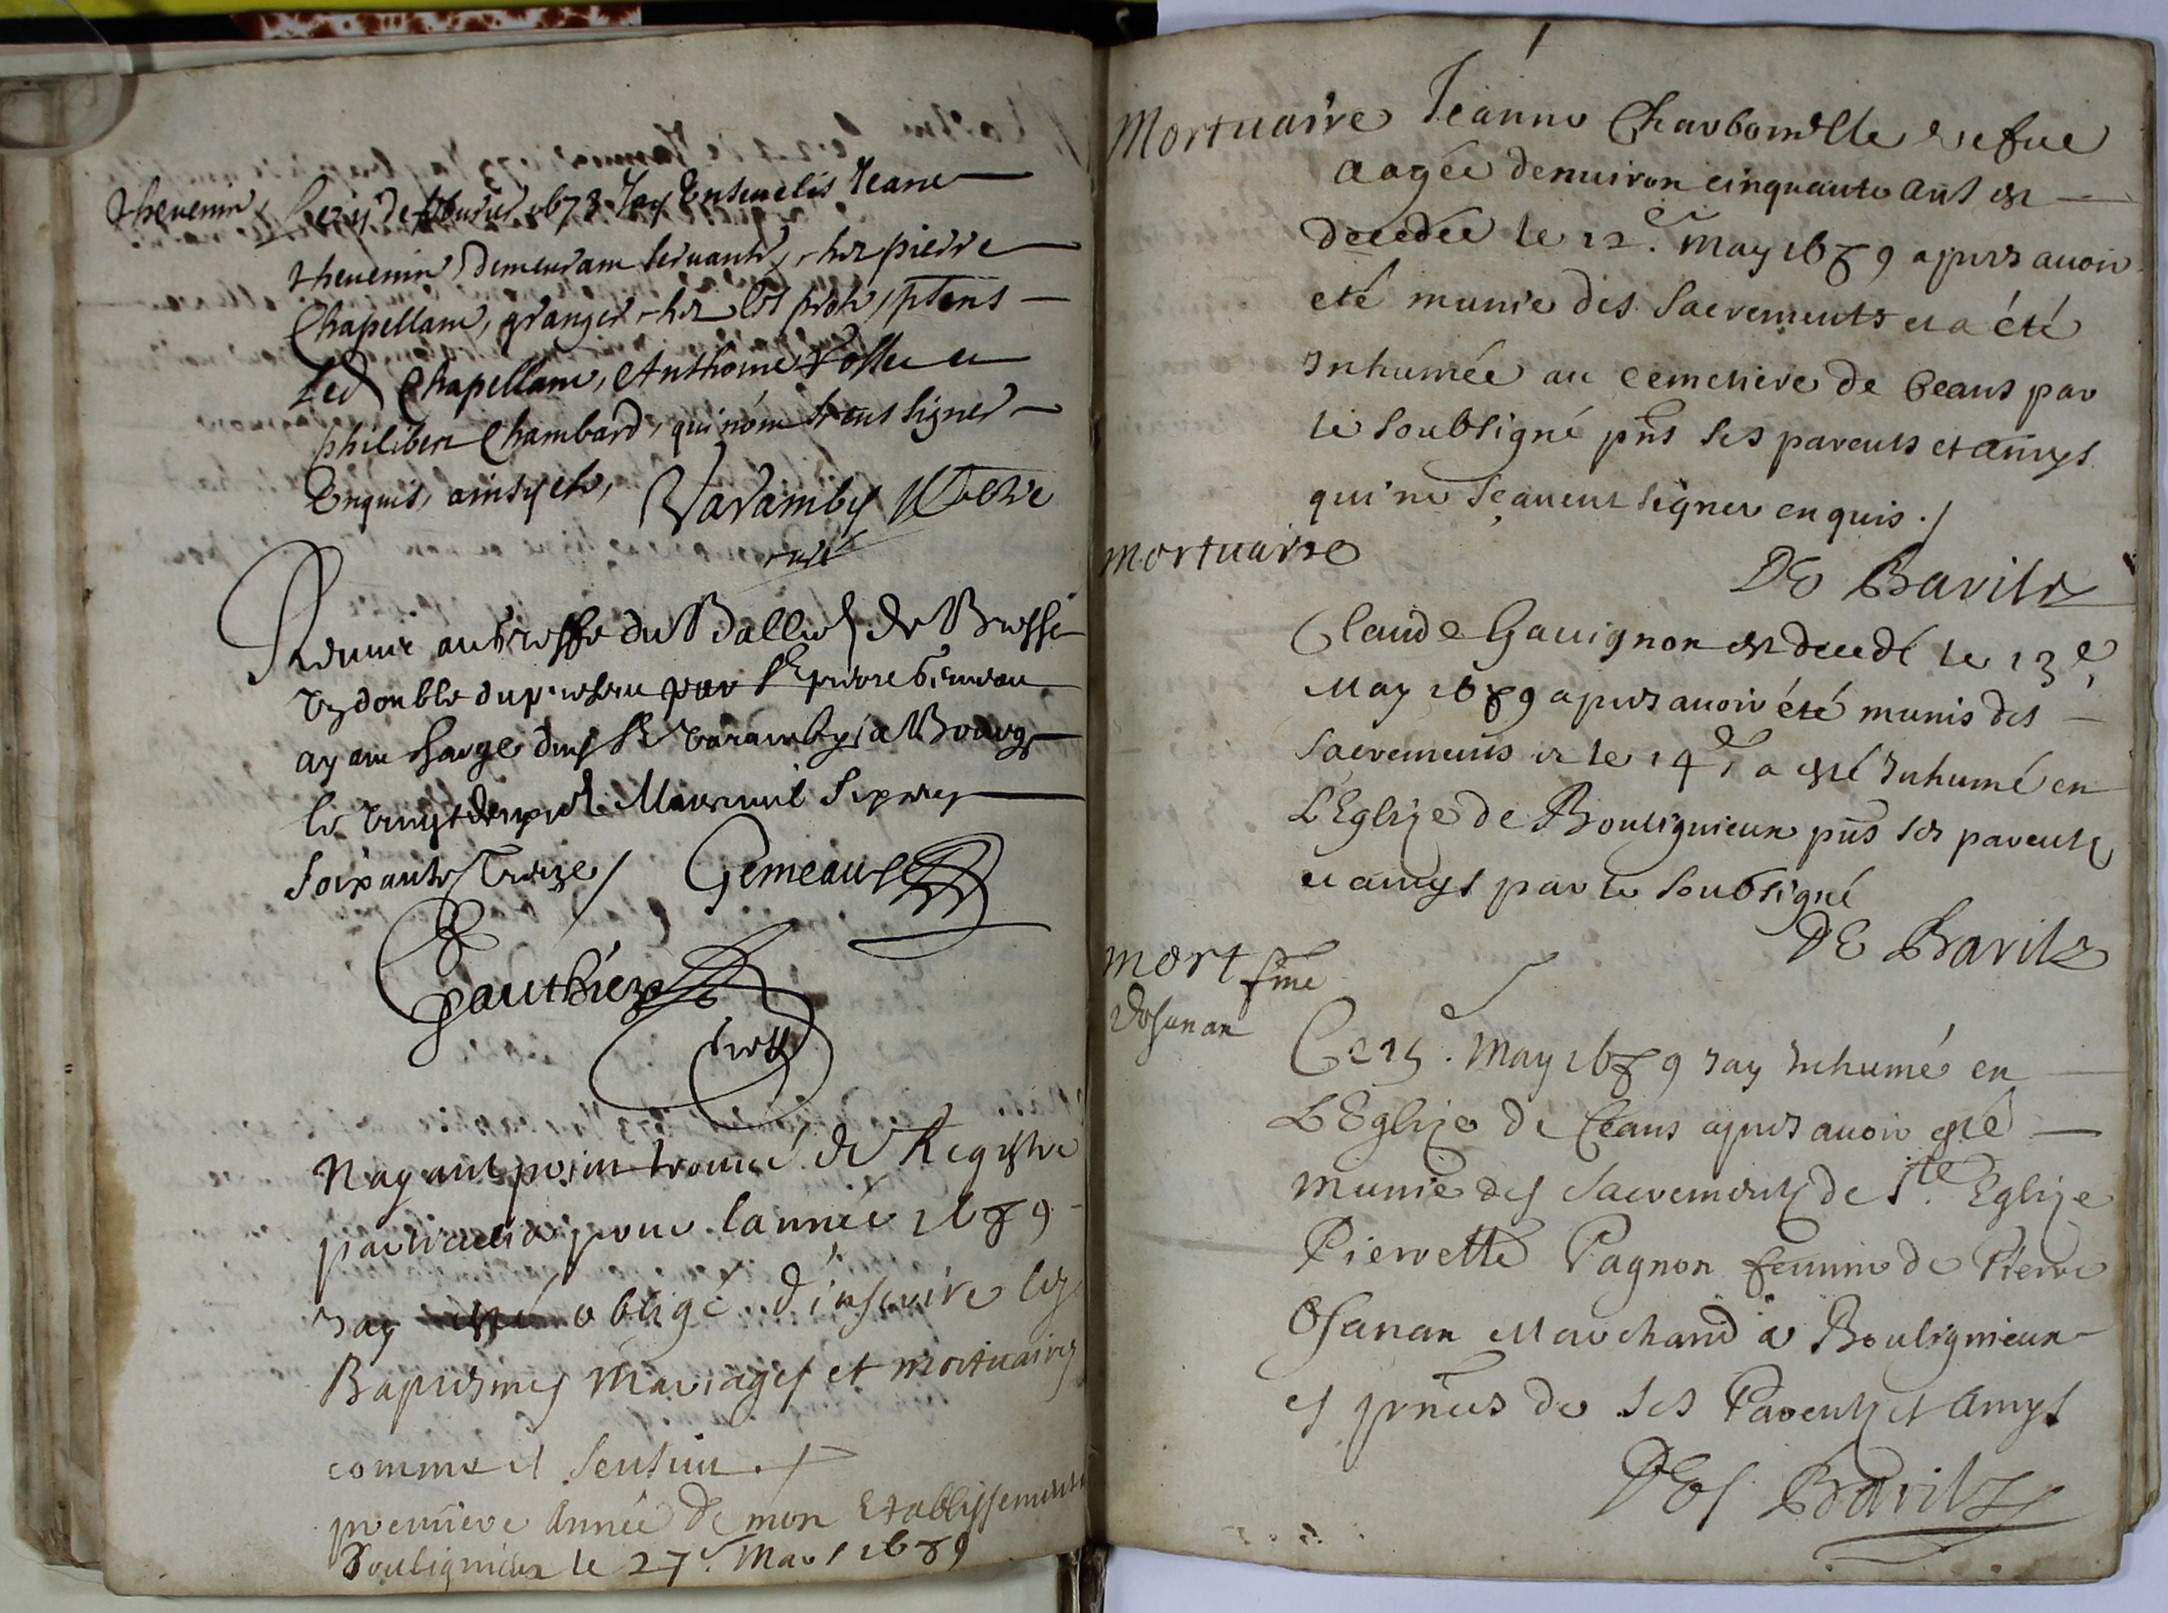 thevenin
Jay Ensevelis Jeane
thevenin demeurant servante, chez pierre
Chapellam, granger chez
Led Chapellam, Anthoine et
philibert Chambard, qui nont sceus signer
Enquis, ainsy est, Varamby
curé
Remis au Greffe du Balliage de Bresse
un double du present par
ayant charge dud Sr Varamby a Bourg
le vingt
soixante Treize / Gemeau
Gauthier
Nayant point trouvé de Registre
particulier pour lannée 1689
Jay obligé d'inscrire les
Baptesmes Mariages et mortuaires
comme il sensuit ./
premiere Année de mon Etablissement
Boulignieux le 27e. Mars 1689
Mortuaire Jeanne Charbonnelle vefue
aagée denuiron cinquante ans est
decedée le 12e. May 1689 apres auoir
eté munie des Sacrements et a été
Inhumée au Cemetiere de Ceans par
le soubsigné pnts ses parents et amys
qui ne sçauent signer enquis ./
mortuaire
DE Barilz
Claude Gauignon est decedé le 13e,
May 1689 apres auoir été munis des
Sacrements et le 14e, a esté Inhumé en
LEglize de Boulignieux pnts ses parents
et amys par le soubsigné
DE Barilz
mort fme
dosanan
Ce 15. May 1689 Jay Inhumé en
LEglize de Ceans apres auoir esté
munie des Sacrements de Ste. Eglize
Pierrette Pagnon femme de Pierre
Osanan Marchand a Boulignieux
es pnces de ses Parents et Amys
DEs Barilz